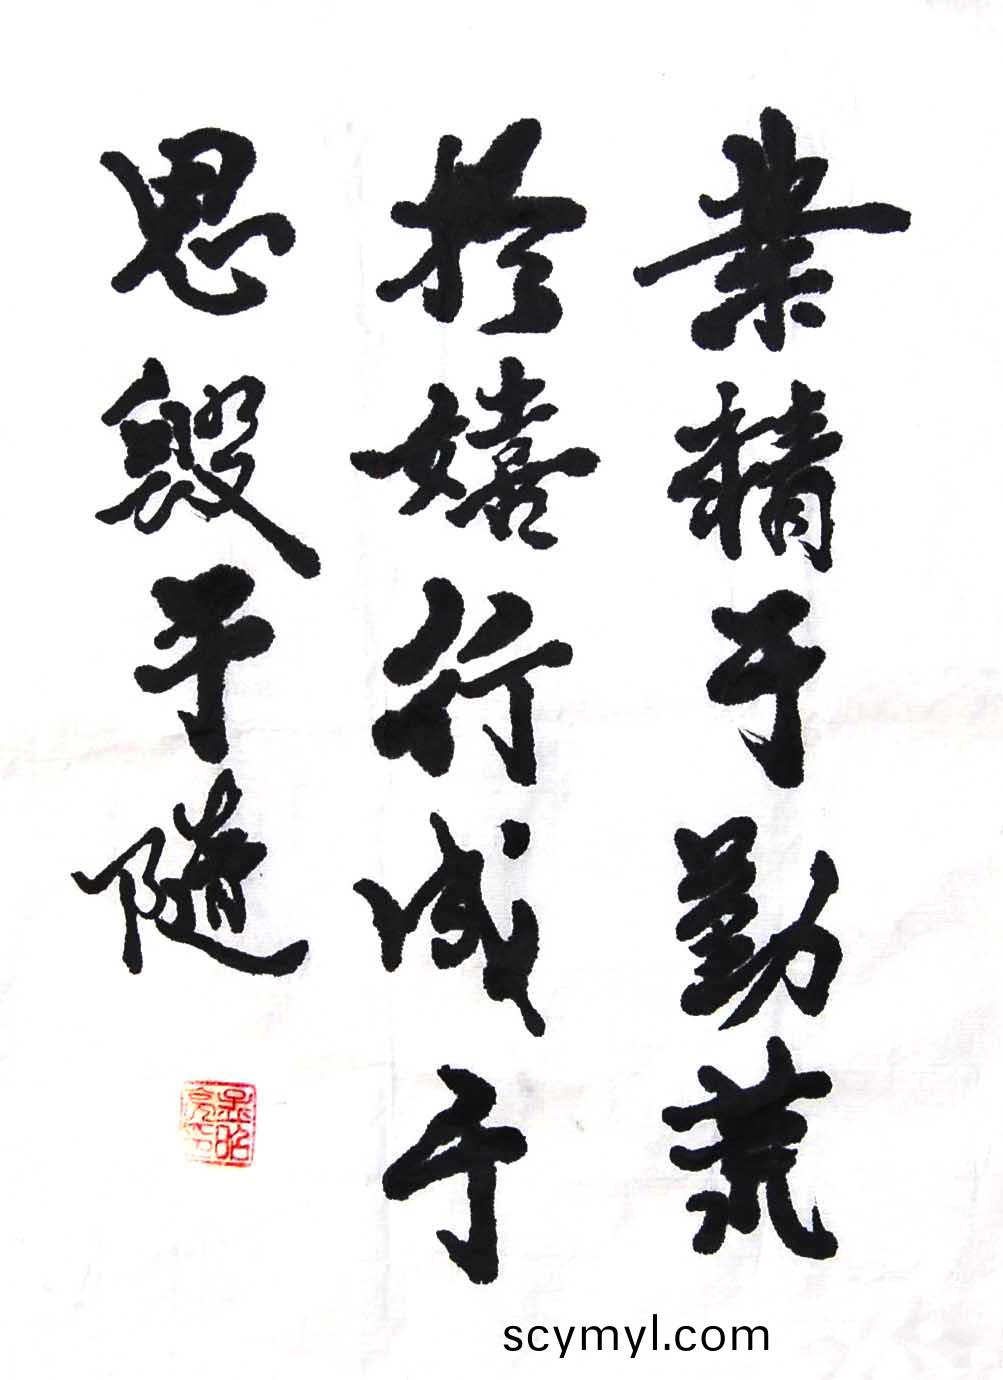 業精于勤荒
於嬉行成于
思毀于隨
孟昭
scymyl.com